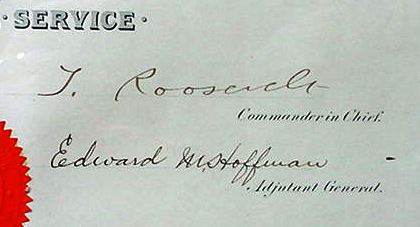 · SERVICE ·
T. Roosevelt
Commander in Chief.
Edward M. Hoffman
Adjutant General.